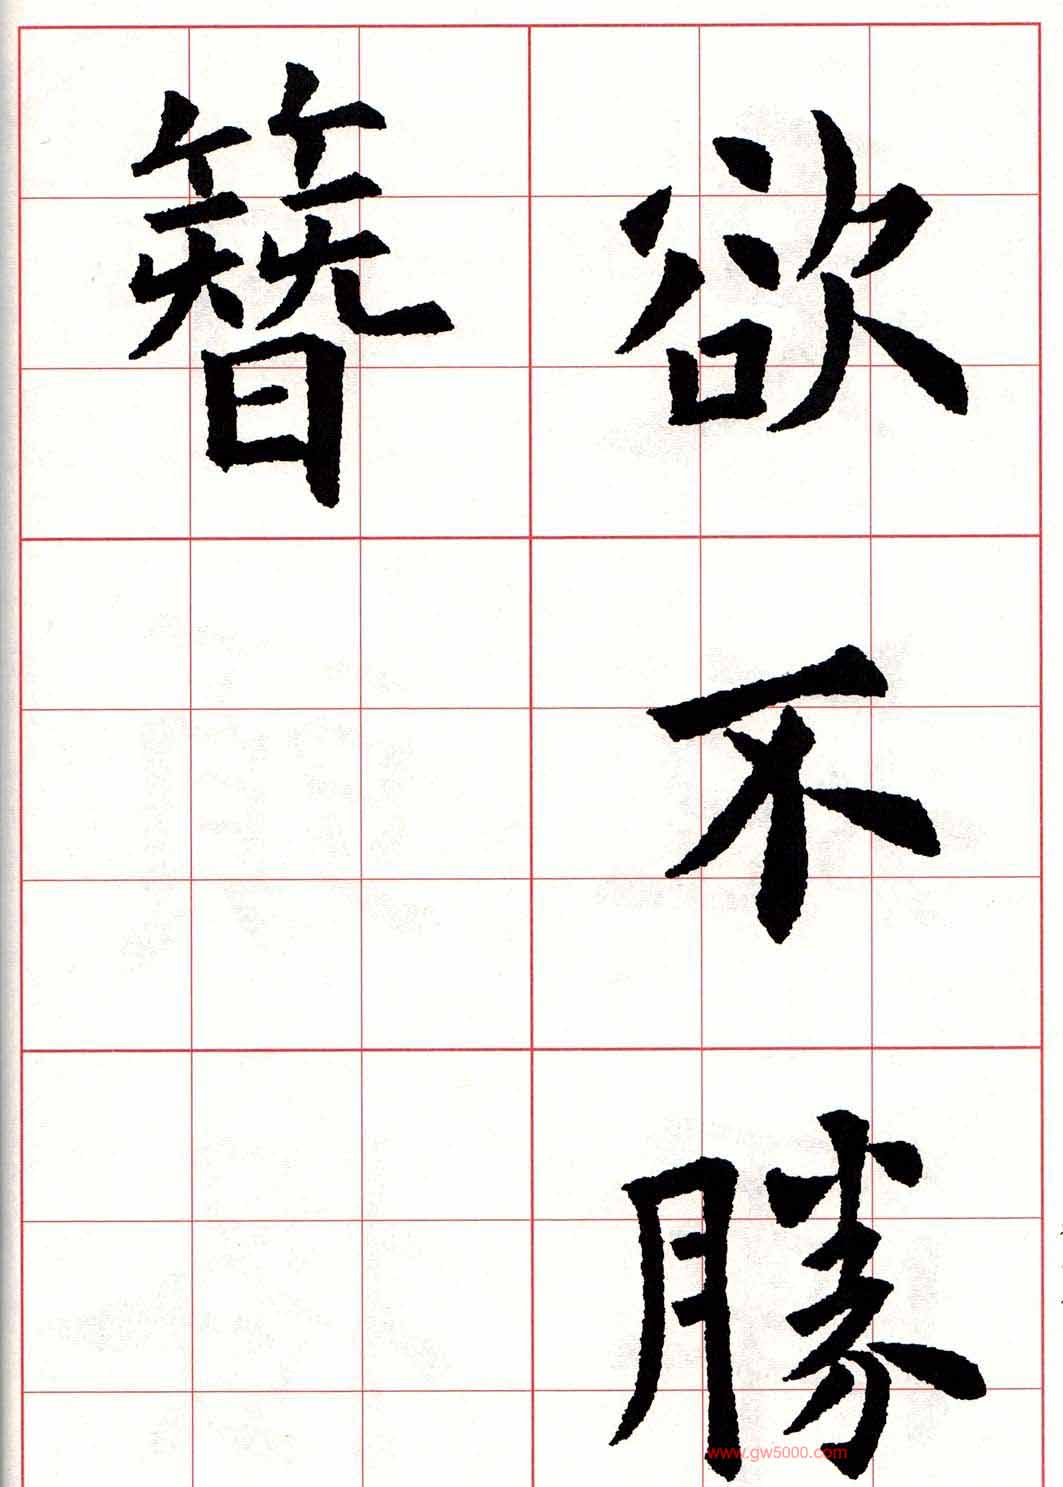 欲不勝
簪
www.gw5000.com